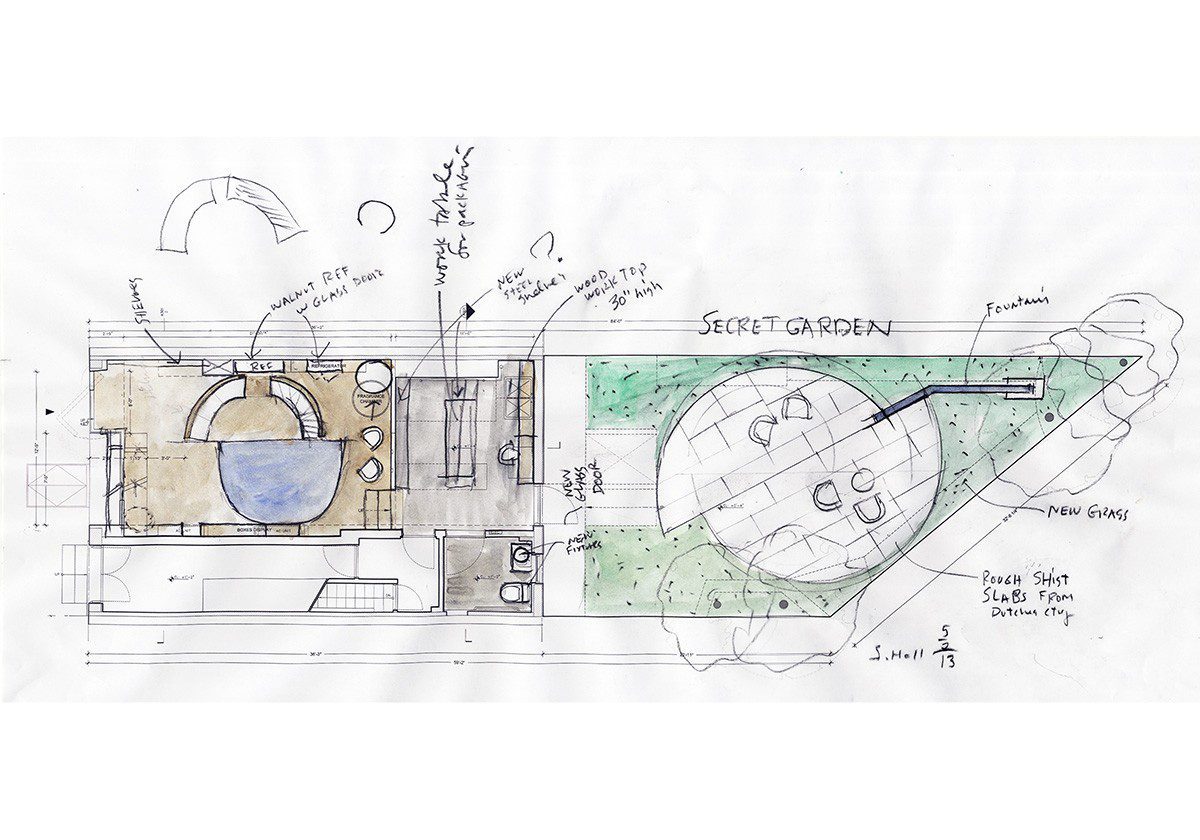 SHELVES
WALNUT REF
W GLASS DOOR
work table
for packaging
NEW
STEEL
shelves
?
WOOD
WORK TOP
30" high
SECRET GARDEN
Fountain
REF
REFRIGERATOR
FRAGRANCE
CHAMBER
BOXES DISPLAY
NEW
GLASS
DOOR
NEW
Fixtures
NEW GRASS
ROUGH SHIST
SLABS FROM
Dutchess cty
S. Holl 5/2/13
36'-0"
59'-0"